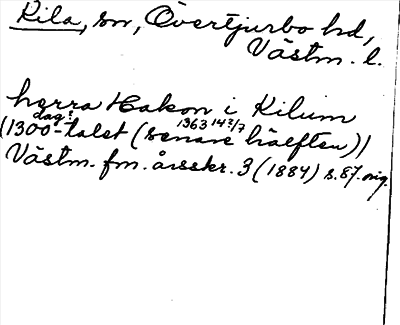 Kila, sn, Övertjurbo hd,
Västm. l.
herra Hakon i Kilum
dag:
1363 14 2/7
(1300-talet (senare hälften))
Västm. fm. årsskr. 3 (1884) s. 87. orig.